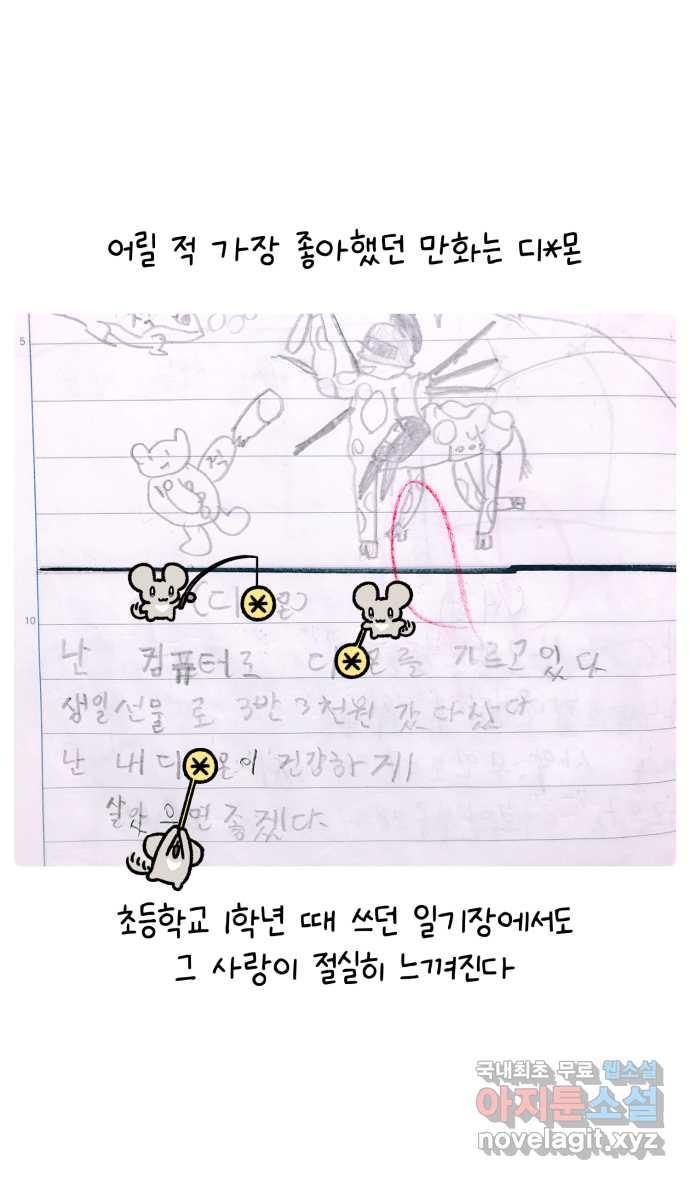 어릴 적 가장 좋아했던 만화는 디*몬
5
적
10
(디*몬)
난 컴퓨터로 디*몬를 기르고있다
생일선물 로 3반 3천원 갔다왔다
난 내디*몬이 건강하게
살았으면좋겠다.
초등학교 1학년 때 쓰던 일기장에서도
그 사랑이 절실히 느껴진다
국내최초 무료 웹소설
아지툰소설
novelagit.xyz